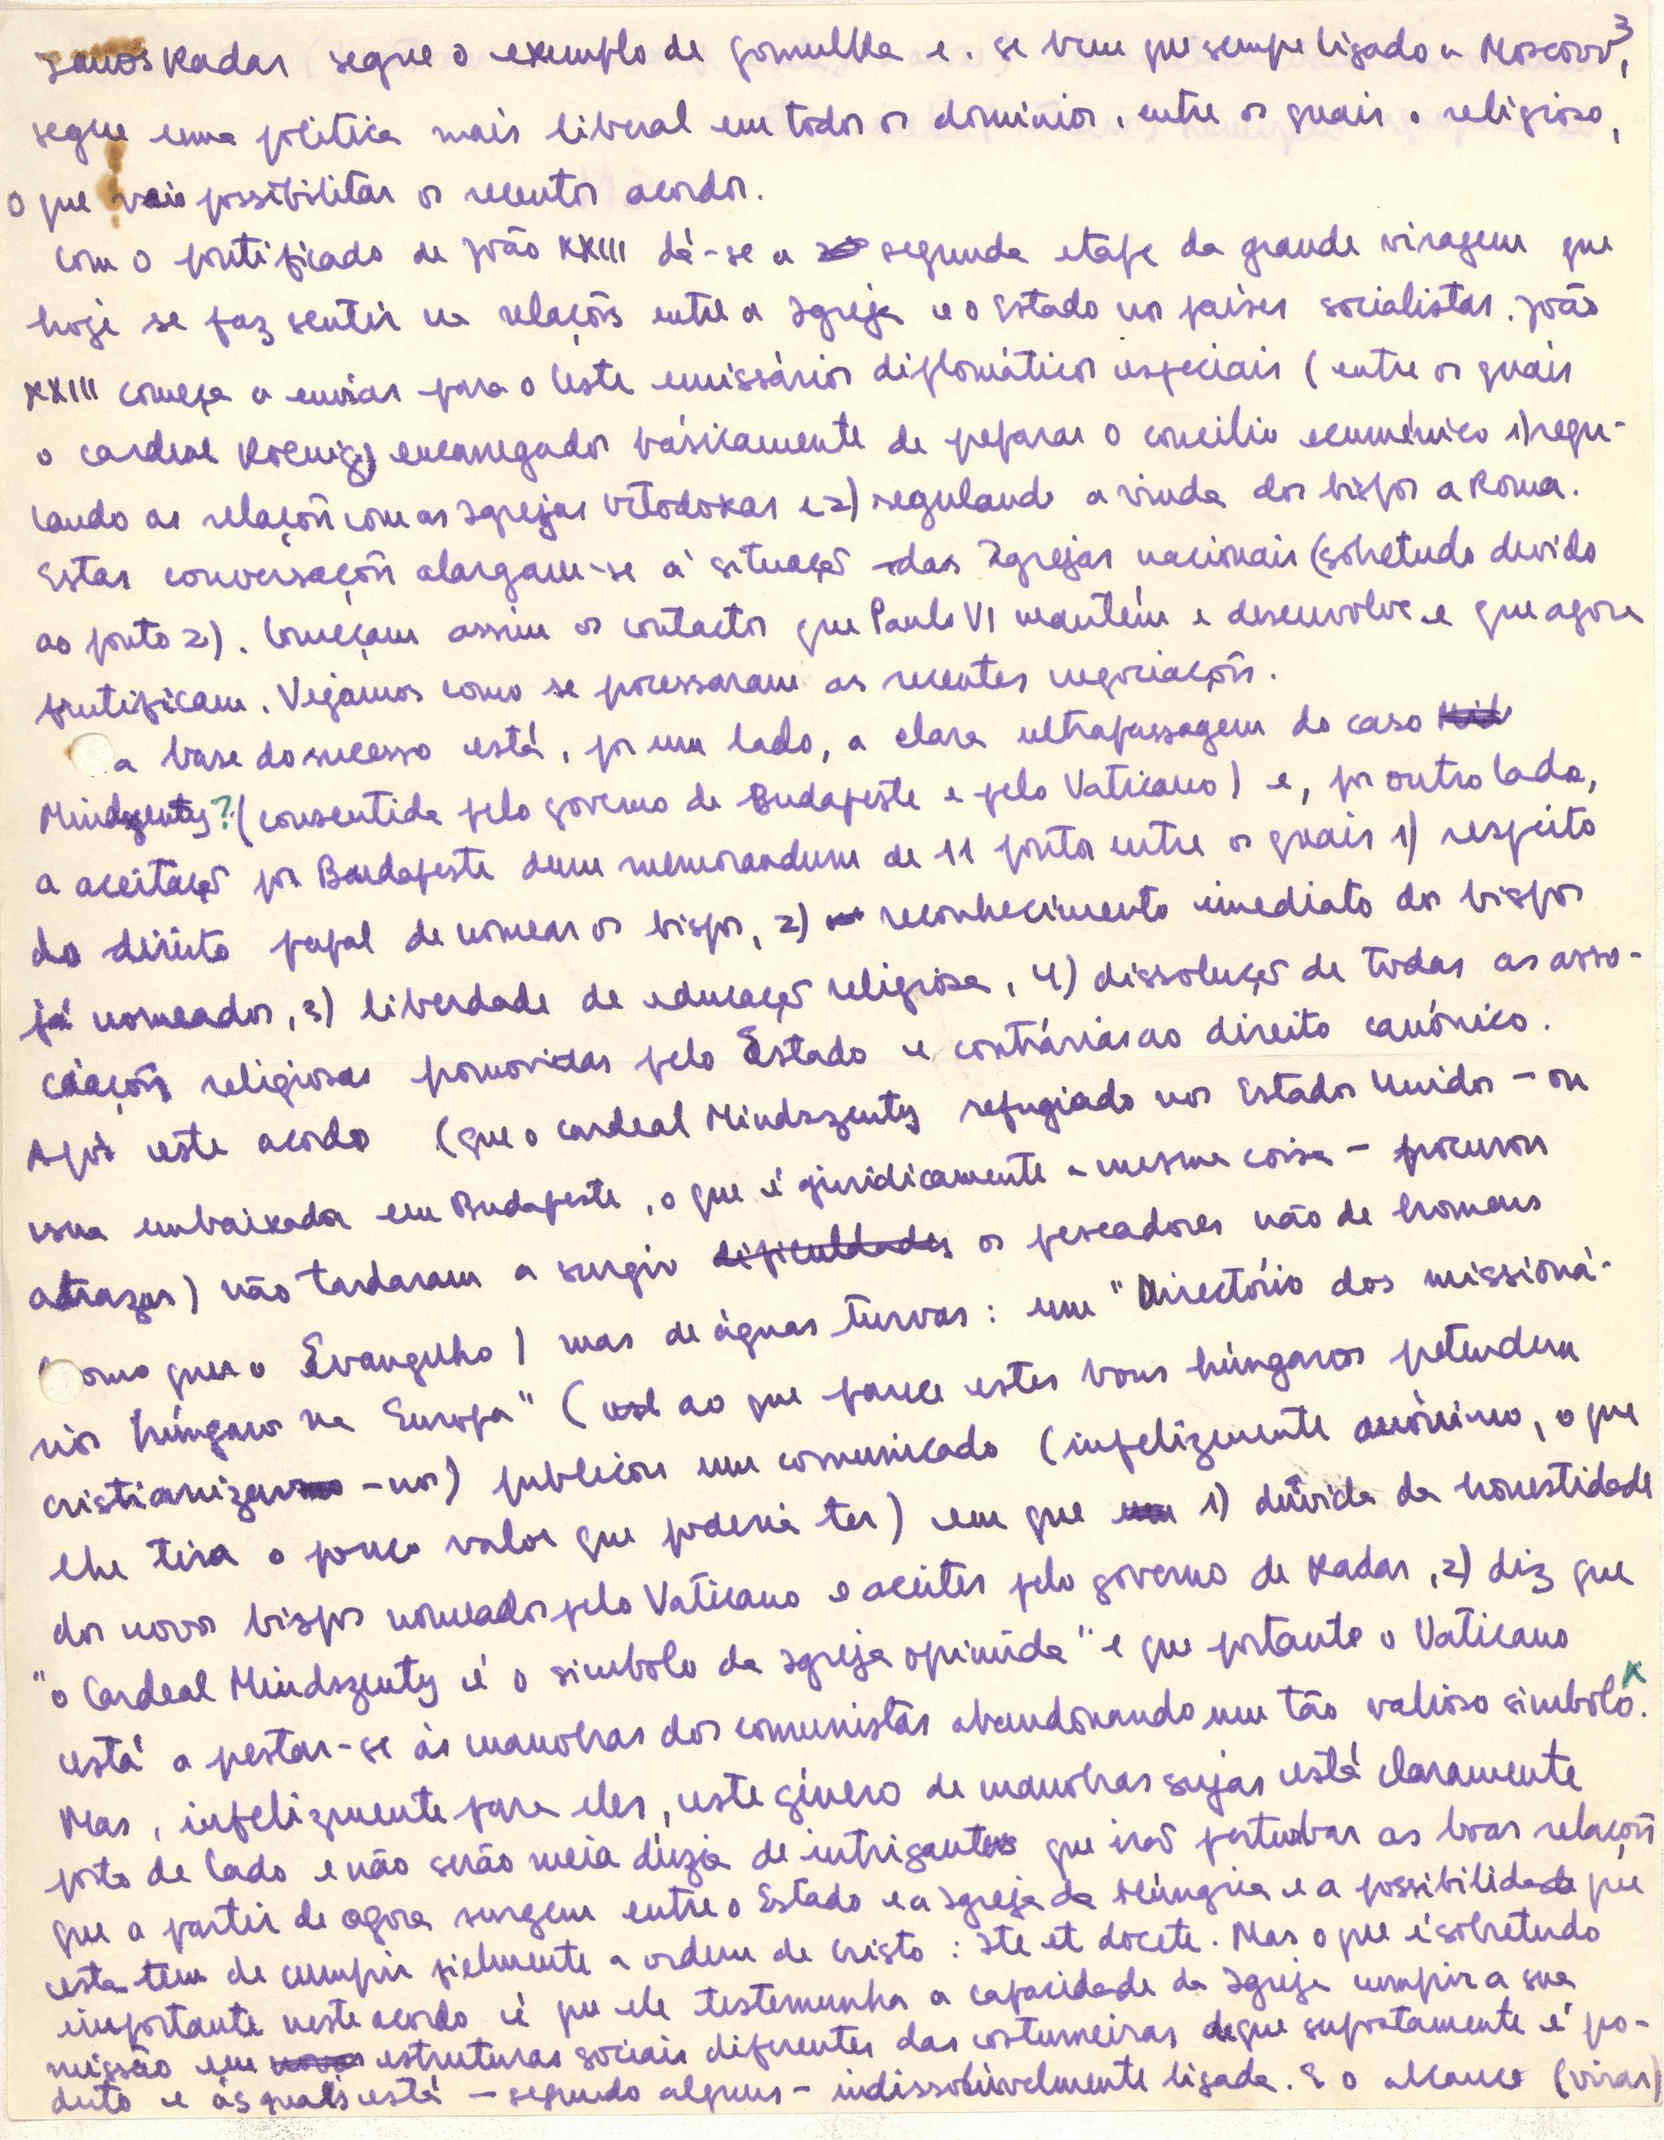 3
Janos Kadar segue o exemplo de Gomulka e, se bem que sempre ligado a Moscovo,
segue uma politica mais liberal em todos os dominios, entre os quais o religioso,
o que veio possibilitar os recentes acordos.
Com o pontificado de João XXIII dá-se a segunda etapa da grande viragem que
hoje se faz sentir na relações entre a Igreja e o Estado nos países socialistas. João
XXIII começa a enviar para o Leste emissários diplomáticos especiais (entre os quais
o cardeal Koenig) encarregados básicamente de preparar o concílio ecuménico 1) regu-
lando as relações com as Igrejas Ortodoxas e 2) regulando a vinda dos bispos a Roma.
Estas conversações alargam-se à situação das Igrejas nacionais (sobretudo devido
ao ponto 2). Começam assim os contactos que Paulo VI mantém e desenvolve e que agora
frutificam. Vejamos como se processaram as recentes negociações.
a base do sucesso está, por um lado, a clara ultrapassagem do caso
Mindszenty? (consentida pelo governo de Budapeste e pelo Vaticano) e, por outro lado,
a aceitação por Budapeste dum memorandum de 11 pontos entre os quais 1) respeito
do direito papal de nomear os bispos, 2) reconhecimento imediato dos bispos
já nomeados, 3) liberdade de educação religiosa, 4) dissolução de todas as asso-
ciações religiosas promovidas pelo Estado e contrárias ao direito canónico.
Após este acordo (que o cardeal Mindszenty refugiado nos Estados Unidos - ou
sua embaixada em Budapeste, o que é juridicamente a mesma coisa - procurou
atrazar) não tardaram a surgir dificuldades os pescadores não de homens
como quer o Evangelho) mas de águas turvas: um "Directório dos missioná-
rios húngaros na Europa" (ao que parece estes bons húngaros pretendem
cristianizar-nos) publicou um comunicado (infelizmente anónimo, o que
lhe tira o pouco valor que poderia ter) em que 1) duvida da honestidade
dos novos bispos nomeados pelo Vaticano e aceites pelo governo de Kadar, 2) diz que
"o Cardeal Mindszenty é o simbolo da Igreja oprimida" e que portanto o Vaticano
está a prestar-se às manobras dos comunistas abandonando um tão valioso simbolo.
Mas, infelizmente para eles, este género de manobras sujas está claramente
posto de lado e não serão meia dúzia de intrigantes que irão perturbar as boas relações
que a partir de agora surgem entre o Estado e a Igreja da Hungria e a possibilidade que
esta tem de cumprir fielmente a ordem de Cristo: Ite et docete. Mas o que é sobretudo
importante neste acordo é que ele testemunha a capacidade da Igreja cumprir a sua
missão em estruturas sociais diferentes das costumeiras de que supostamente é pro-
duto e às quais está - segundo alguns - indissolúvelmente ligada. E o alcance (virar)